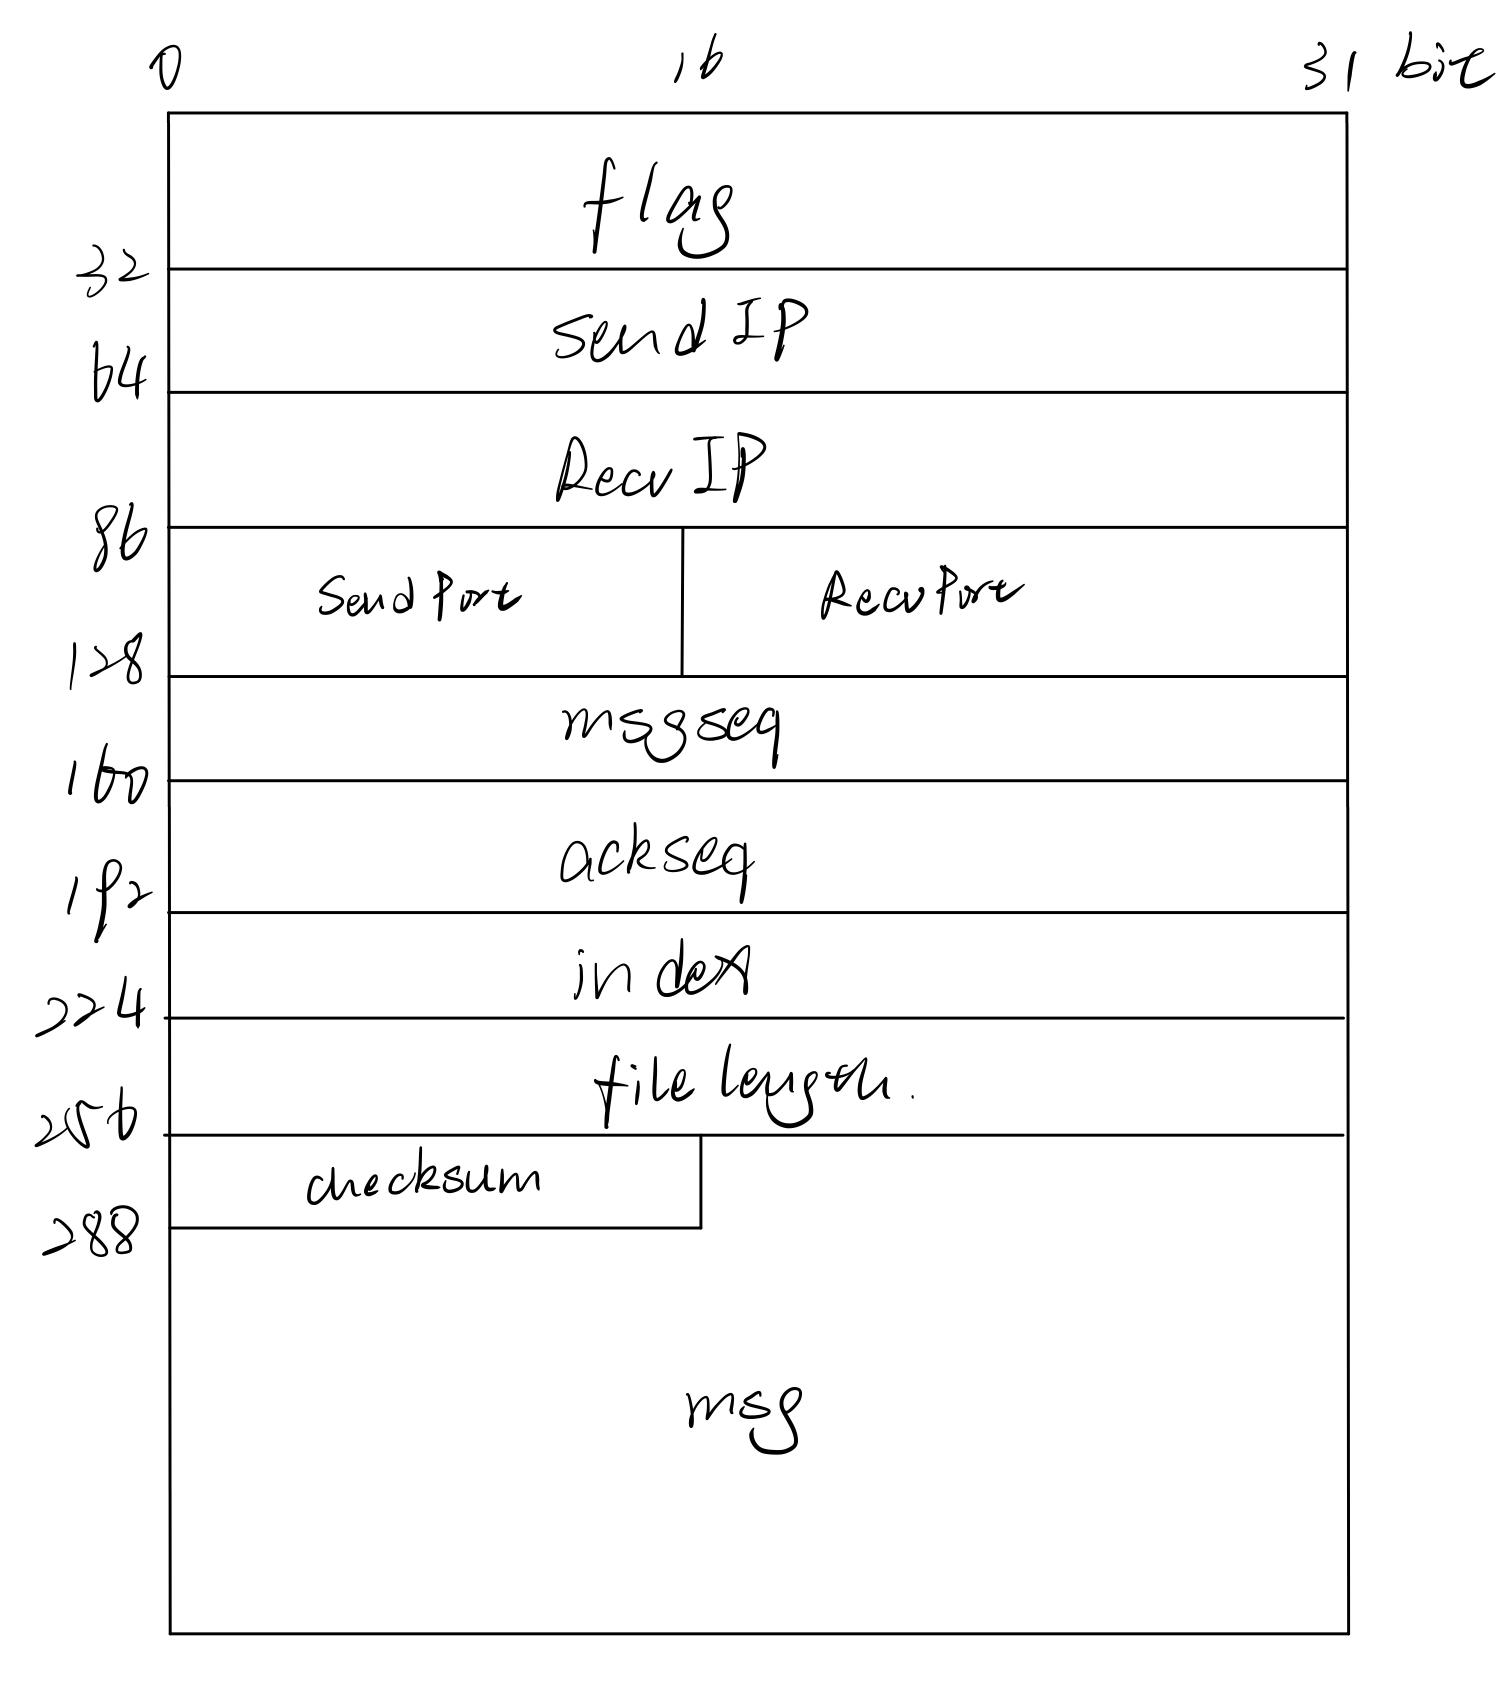 0 16 31 bit
flag
32
send IP
64
Recv IP
86
Send Port Recv Port
128
msgseq
160
ackseq
192
index
224
file length.
256
checksum
288
msg